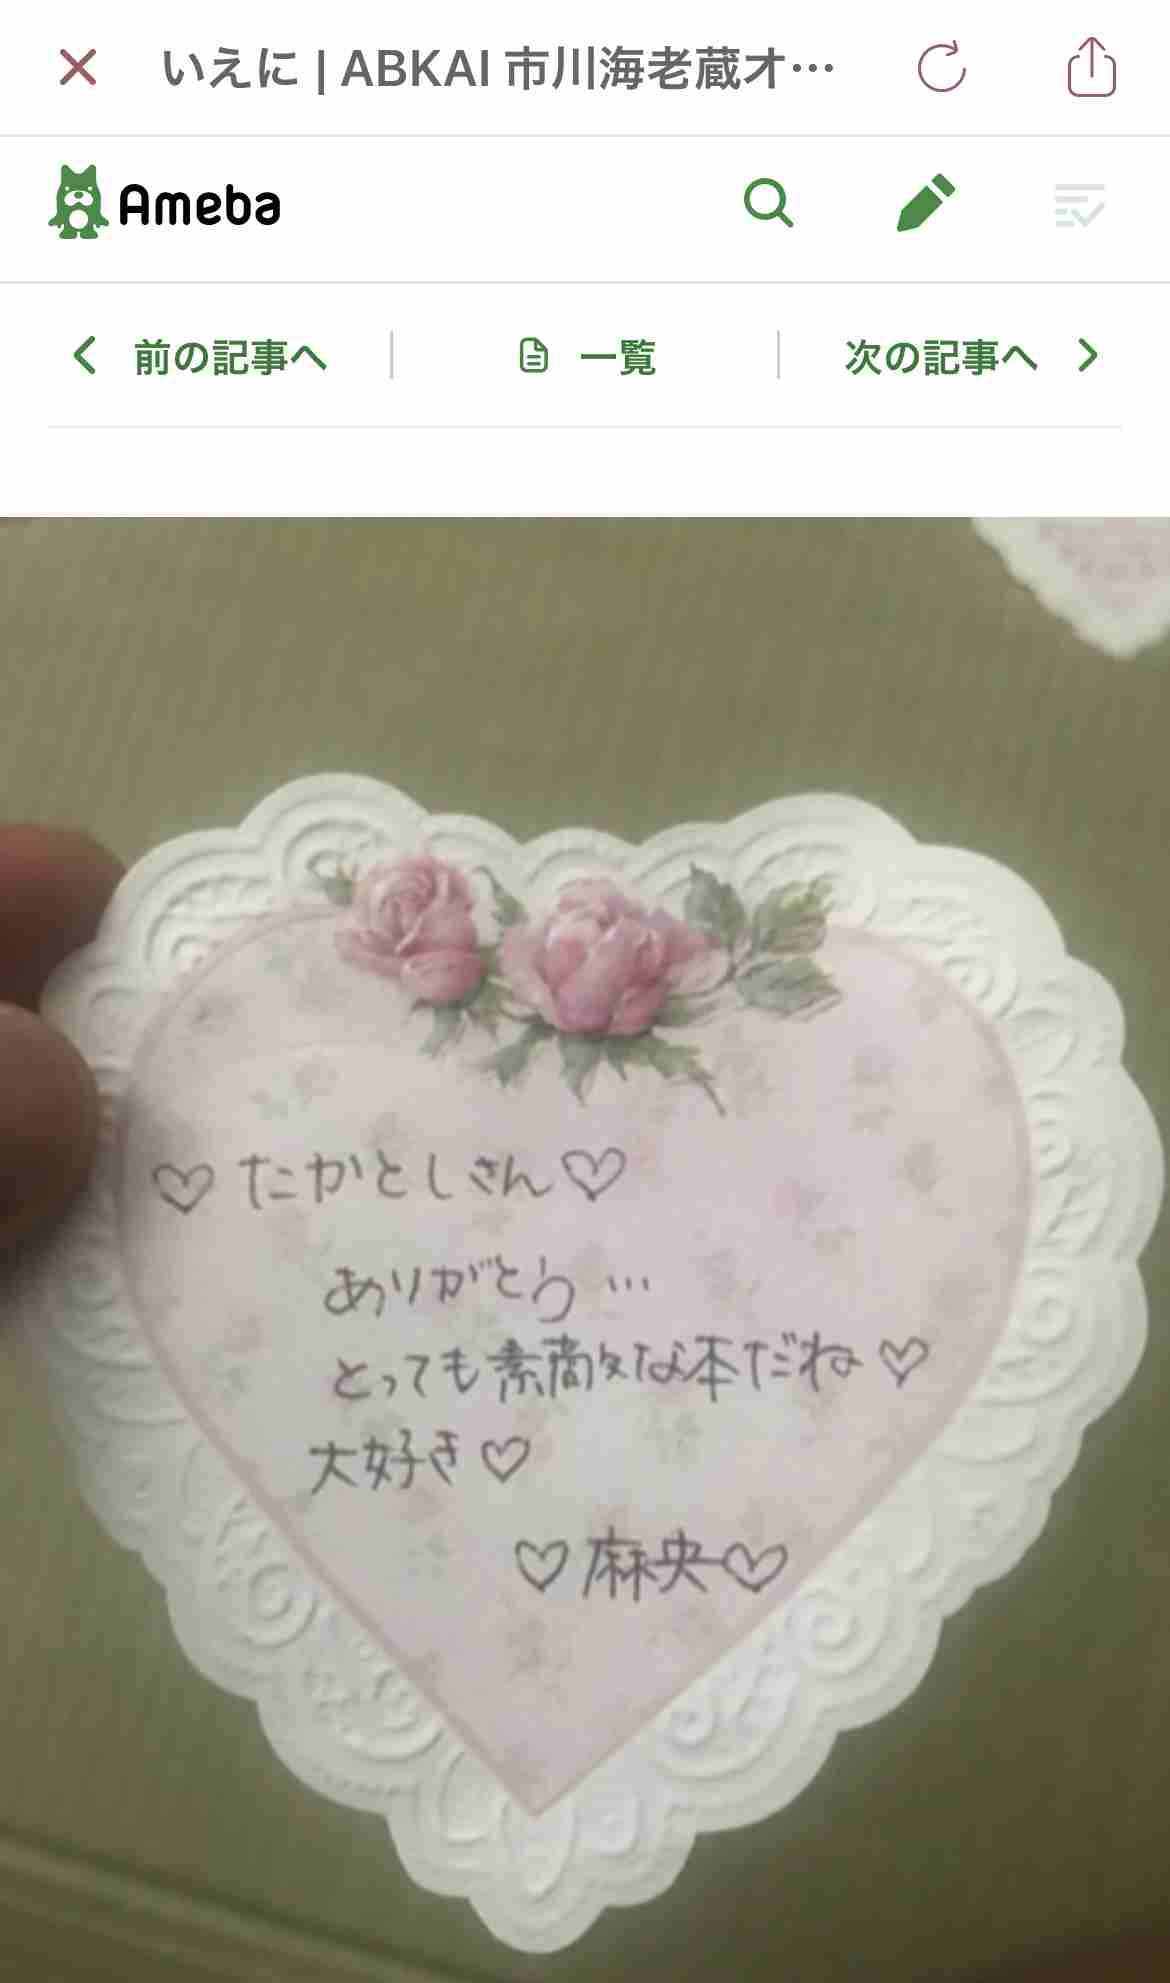 いえに | ABKAI 市川海老蔵オ…
Ameba
前の記事へ
一覧
次の記事へ
♡たかとしさん♡
ありがとう…
とっても素敵な本だね♡
大好き♡
♡麻央♡